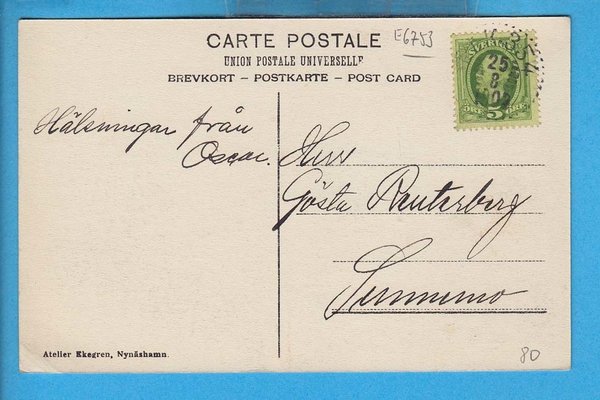 E6753
CARTE POSTALE
UNION POSTALE UNIVERSELLE
BREVKORT – POSTKARTE – POST CARD
SVERIGE
25
8
5
Hälsningar från
Oscar.
Herr
Gösta Rauterberg
Atelier Ekegren, Nynäshamn.
80